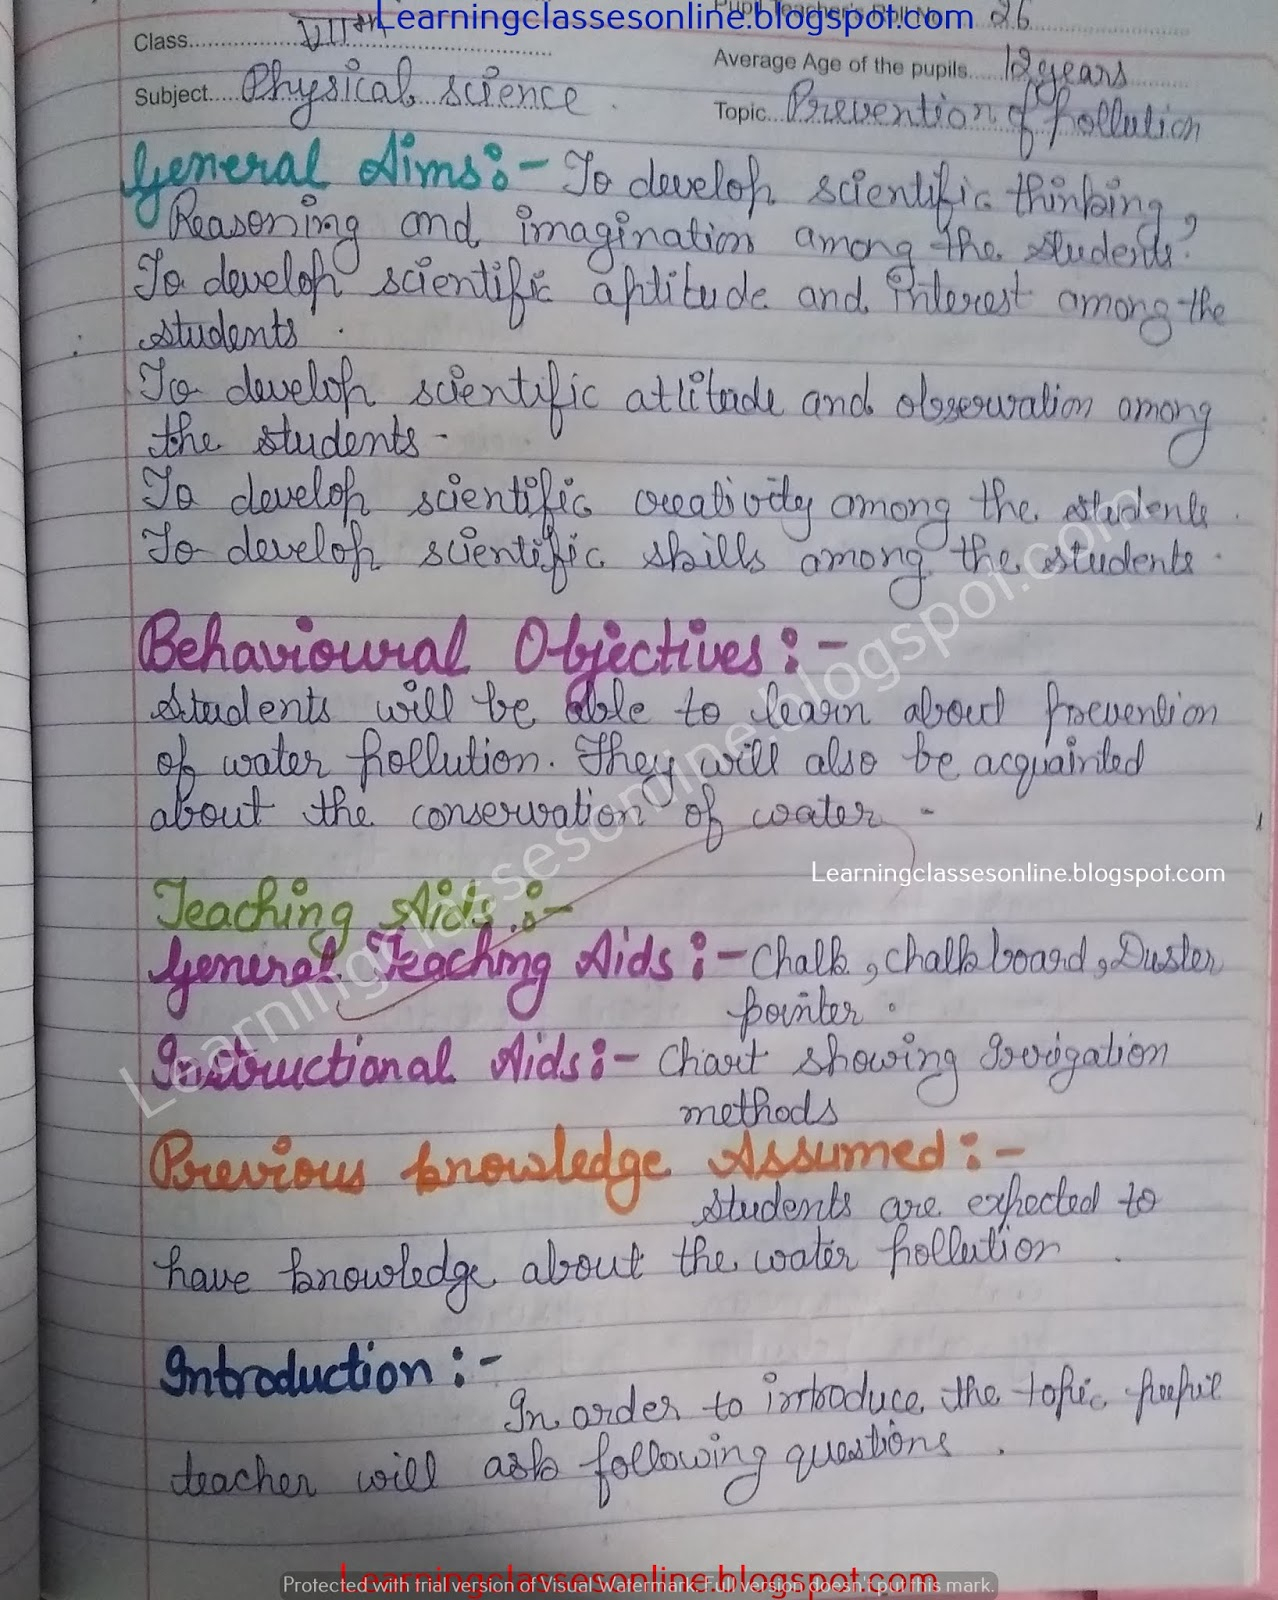 Learningclassesonline.blogspot.com
Pupil Teacher's Roll No. 26
Class VIIIth
Average Age of the pupils 12 years
Subject Physical science
Topic Prevention of pollution
General Aims:- To develop scientific thinking,
Reasoning and imagination among the students.
To develop scientific aptitude and interest among the
students.
To develop scientific attitude and observation among
the students-
To develop scientific creativity among the students.
To develop scientific skills among the students.
Behavioural Objectives:-
Students will be able to learn about prevention
of water pollution. They will also be acquainted
about the conservation of water-
Learningclassesonline.blogspot.com
Learningclassesonline.blogspot.com
Teaching Aids:-
General Teaching Aids:- Chalk, Chalkboard, Duster
pointer.
Instructional Aids:- Chart showing Irrigation
methods
Previous knowledge Assumed:-
Students are expected to
have knowledge about the water pollution.
Introduction:-
In order to introduce the topic pupil
teacher will ask following questions.
Learningclassesonline.blogspot.com
Protected with trial version of Visual Watermark. Full version doesn't put this mark.